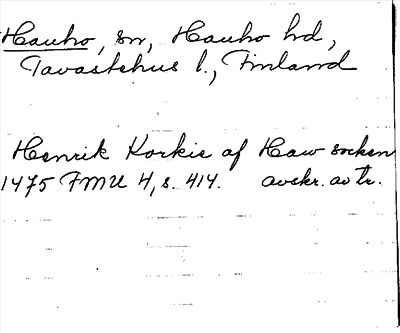 Hauho, sn, Hauho hd,
Tavastehus l., Finland
Henrik Korkie af Haw socken
1475 FMU 4, s. 414. avskr. av tr.